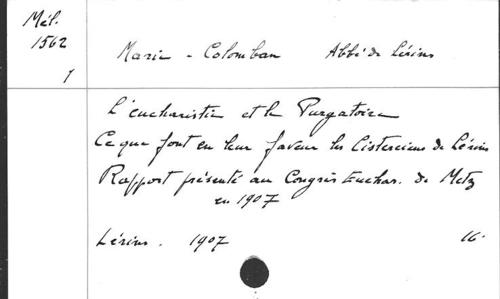 Mél.
1562
1
Marie - Colomban Abbé de Lérins
L'eucharistie et le Purgatoire
Ce que font en leur faveur les Cisterciens de Lérins
Rapport présenté au Congrès Euchar. de Metz
en 1907
Lérins. 1907 16.